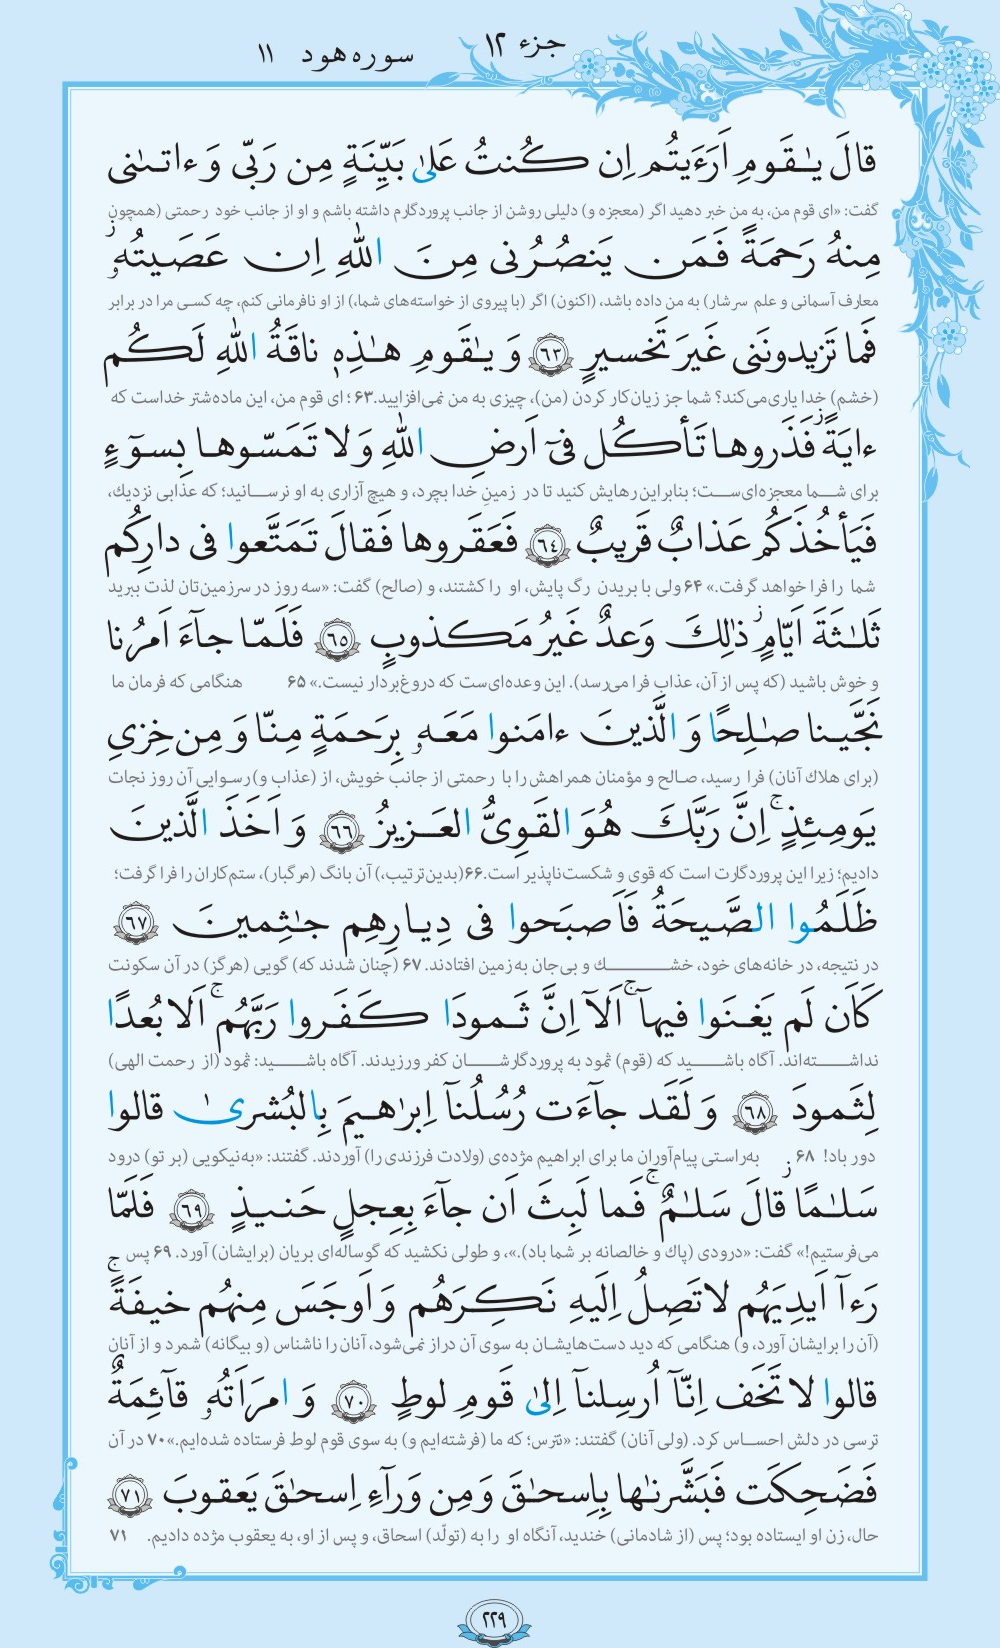 جزء ۱۲
سوره هود ۱۱
قالَ يـٰقَومِ اَرَءَيتُم اِن كُنتُ عَلىٰ بَيِّنَةٍ مِن رَبّى وَ ءاتـٰنى
گفت: «ای قوم من، به من خبر دهید اگر (معجزه و) دلیلی روشن از جانب پروردگارم داشته باشم و او از جانب خود رحمتی (همچون
مِنهُ رَحمَةً فَمَن يَنصُرُنى مِنَ اللّٰهِ اِن عَصَيتُهُۥ ز
معارف آسمانی و علم سرشار) به من داده باشد، (اکنون) اگر (با پیروی از خواسته‌های شما،) از او نافرمانی کنم، چه کسی مرا در برابر
فَما تَزيدونَنى غَيرَ تَخسيرٍ ﴿٦٣﴾ وَ يـٰقَومِ هـٰذِهِۦ ناقَةُ اللّٰهِ لَكُم
(خشم) خدا یاری می‌کند؟ شما جز زیان‌کار کردن (من)، چیزی به من نمی‌افزایید.۶۳ ؛ ای قوم من، این ماده‌شتر خداست که
ءايَةً ز فَذَروها تَأكُل فىٓ اَرضِ اللّٰهِ وَ لا تَمَسّوها بِسوٓءٍ
برای شما معجزه‌ای‌ست؛ بنابراین رهایش کنید تا در زمینِ خدا بچرد، و هیچ آزاری به او نرسانید؛ که عذابی نزدیك،
فَيَأخُذَكُم عَذابٌ قَريبٌ ﴿٦٤﴾ فَعَقَروها فَقالَ تَمَتَّعوا فى دارِكُم
شما را فرا خواهد گرفت.» ۶۴ ولی با بریدن رگ پایش، او را کشتند، و (صالح) گفت: «سه روز در سرزمین‌تان لذت ببرید
ثَلـٰثَةَ اَيّامٍ ز ذٰلِكَ وَعدٌ غَيرُ مَكذوبٍ ﴿٦٥﴾ فَلَمّا جآءَ اَمرُنا
و خوش باشید (که پس از آن، عذاب فرا می‌رسد). این وعده‌ای‌ست که دروغ‌بردار نیست.» ۶۵ هنگامی که فرمان ما
نَجَّينا صـٰلِحًا وَ الَّذينَ ءامَنوا مَعَهۥ بِرَحمَةٍ مِنّا وَ مِن خِزىِ
(برای هلاك آنان) فرا رسید، صالح و مؤمنان همراهش را با رحمتی از جانب خویش، از (عذاب و) رسوایی آن روز نجات
يَومِئِذٍ ج اِنَّ رَبَّكَ هُوَ القَوِىُّ العَزيزُ ﴿٦٦﴾ وَ اَخَذَ الَّذينَ
دادیم؛ زیرا این پروردگارت است که قوی و شکست‌ناپذیر است.۶۶(بدین‌ترتیب،) آن بانگ (مرگبار)، ستم‌کاران را فرا گرفت؛
ظَلَمُوا الصَّيحَةُ فَاَصبَحوا فى دِيارِهِم جـٰثِمينَ ﴿٦٧﴾
در نتیجه، در خانه‌های خود، خشك و بی‌جان به‌زمین افتادند. ۶۷ (چنان شدند که) گویی (هرگز) در آن سکونت
كَاَن لَم يَغنَوا فيهآ ج اَلآ اِنَّ ثَمودَا كَفَروا رَبَّهُم ج اَلا بُعدًا
نداشته‌اند. آگاه باشید که (قوم) ثمود به پروردگارشان کفر ورزیدند. آگاه باشید: ثمود (از رحمت الهی)
لِثَمودَ ﴿٦٨﴾ وَ لَقَد جآءَت رُسُلُنآ اِبرٰهيمَ بِالبُشرىٰ قالوا
دور باد! ۶۸ به‌راستی پیام‌آوران ما برای ابراهیم مژده‌ی (ولادت فرزندی را) آوردند. گفتند: «به‌نیکویی (بر تو) درود
سَلـٰمًا ز قالَ سَلـٰمٌ ج فَما لَبِثَ اَن جآءَ بِعِجلٍ حَنيذٍ ﴿٦٩﴾ فَلَمّا
می‌فرستیم!» گفت: «درودی (پاك و خالصانه بر شما باد).»، و طولی نکشید که گوساله‌ای بریان (برایشان) آورد. ۶۹ پس
رَءآ اَيدِيَهُم لا تَصِلُ اِلَيهِ نَكِرَهُم وَ اَوجَسَ مِنهُم خيفَةً ج
(آن را برایشان آورد، و) هنگامی که دید دست‌هایشان به سوی آن دراز نمی‌شود، آنان را ناشناس (و بیگانه) شمرد و از آنان
قالوا لا تَخَف اِنّآ اُرسِلنآ اِلىٰ قَومِ لوطٍ ﴿٧٠﴾ وَ امرَاَتُهُۥ قآئِمَةٌ
ترسی در دلش احساس کرد. (ولی آنان) گفتند: «نترس؛ که ما (فرشته‌ایم و) به سوی قوم لوط فرستاده شده‌ایم.»۷۰ در آن
فَضَحِكَت فَبَشَّرنـٰها بِاِسحـٰقَ وَ مِن وَرآءِ اِسحـٰقَ يَعقوبَ ﴿٧١﴾
حال، زن او ایستاده بود؛ پس (از شادمانی) خندید، آنگاه او را به (تولّد) اسحاق، و پس از او، به یعقوب مژده دادیم. ۷۱
۲۲۹